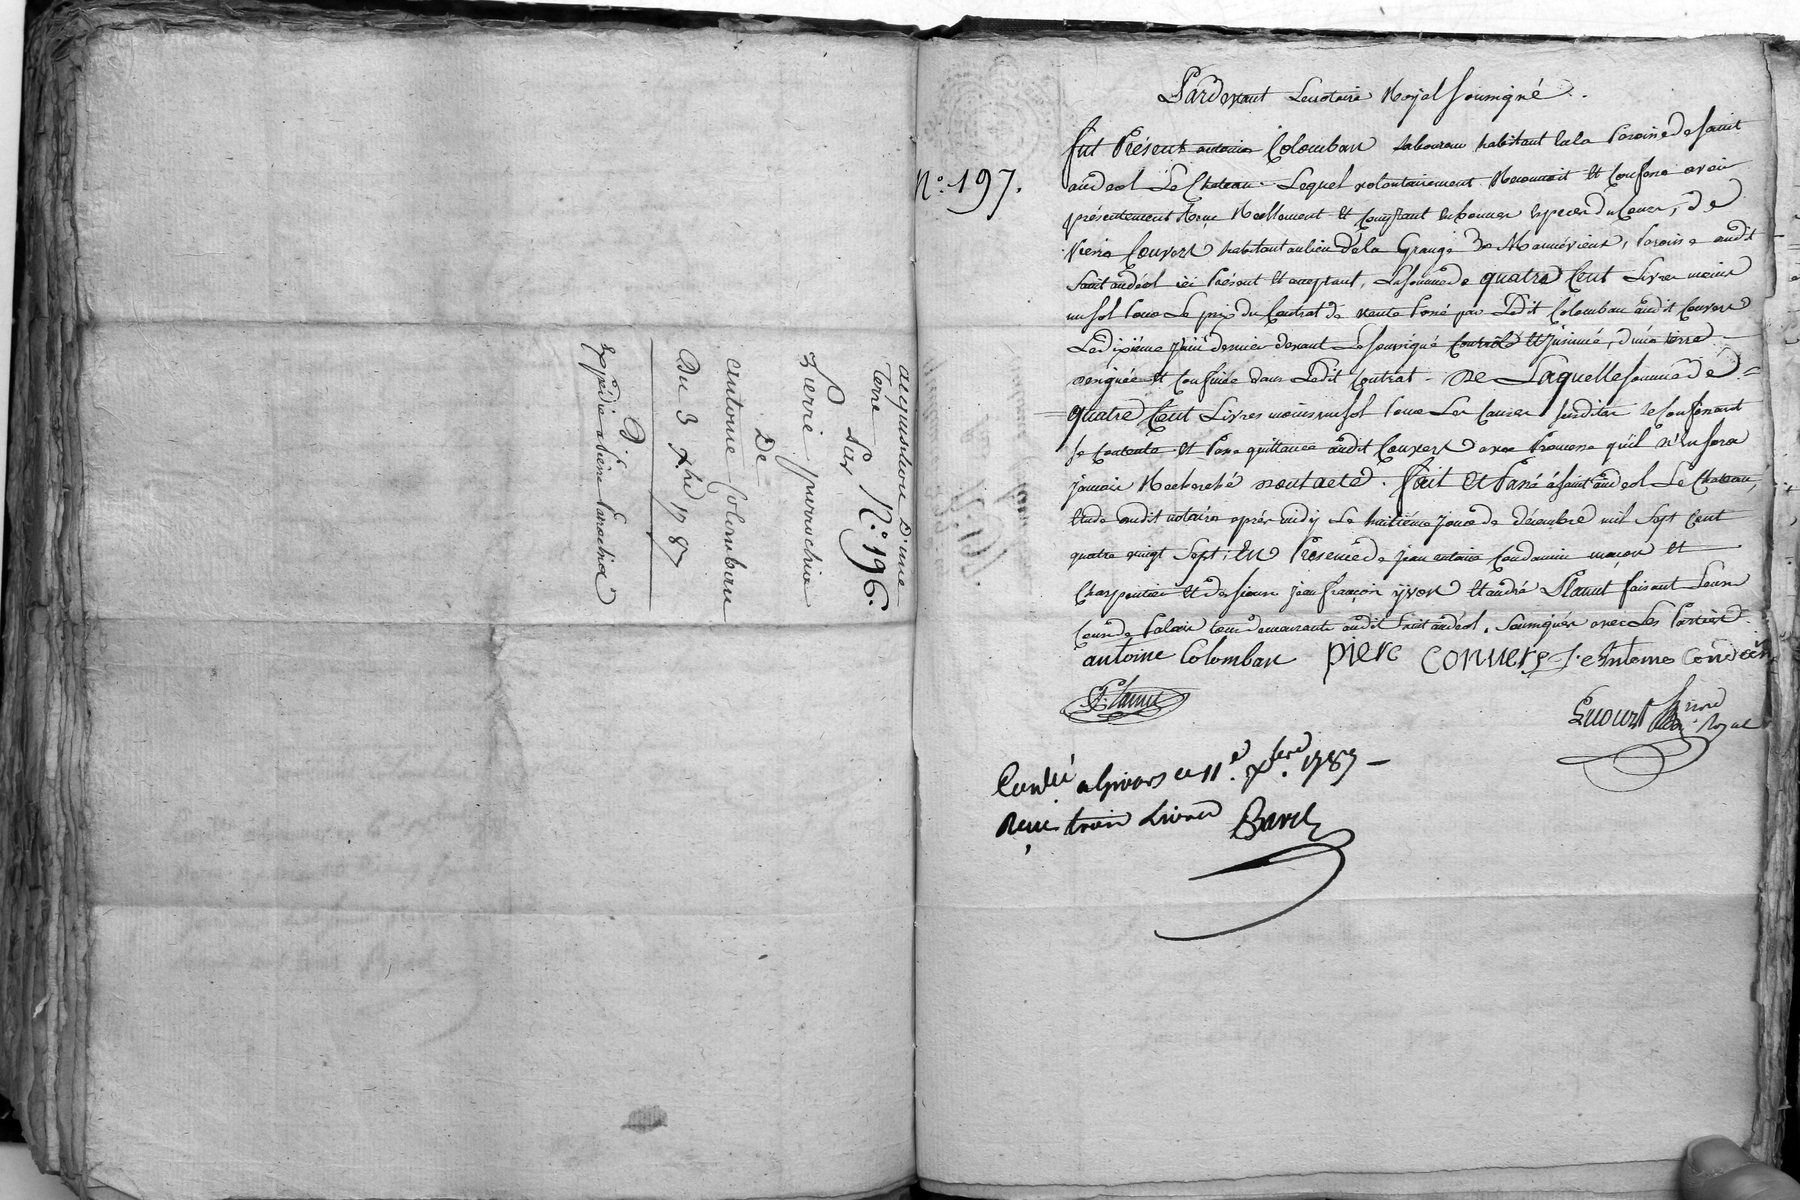 acquisition D'une
Terre N.° 196.
Pour
Pierre parrachia
De
antoine Colomban
Du 3 xbre 1787
Expédié a Pierre Parrachia
Pardevant Lenotaire Royal Soussigné.
N.° 197.
fut Présent antoine Colomban laboureur habitant la Paroisse de saint
andeol Le Chateau. Lequel volontairement Reconnoit Et Confesse avoir
présentement Reçu Reellement Et Comptant en bonnes Especes du Cours, de
Pierre Couvers habitant au lieu de la Grange De Manevieux, Paroisse audit
Saint andéol ici Présent Et acceptant, La somme de quatre Cent Livres moins
un sol Pour Le prix du Contrat de vente Passé par Ledit Colomban audit Couvers
Le dixième Juin dernier devant Le soussigné Controlé Et Insinué, d'une terre
désignée Et Confinée dans Ledit Contrat - De Laquelle somme de
quatre Cent Livres moins un sol Pour Les Causes susdites le Confessant
se Contente Et Passe quittance audit Couvers avec Promesse qu'il n'en sera
jamais Recherché Dont acte. fait Et Passé à saint andeol Le Chateau,
Etude dudit notaire après midy Le huitième jour de décembre mil Sept Cent
quatre vingt Sept, En Présence de jean antoine Condamin maçon et
Charpentier Et de sieurs jean françois yvon Et andré Flamut faisant Leur
Cours de Palais tous demeurants audit Saint andéol, soussignés avec Les Parties.
antoine Colomban piere convers J. e Antoine Condamin
Flamut
Royal
Conlé a Givors ce 11e. xbre 1787 -
Reçu trois Livres Barel